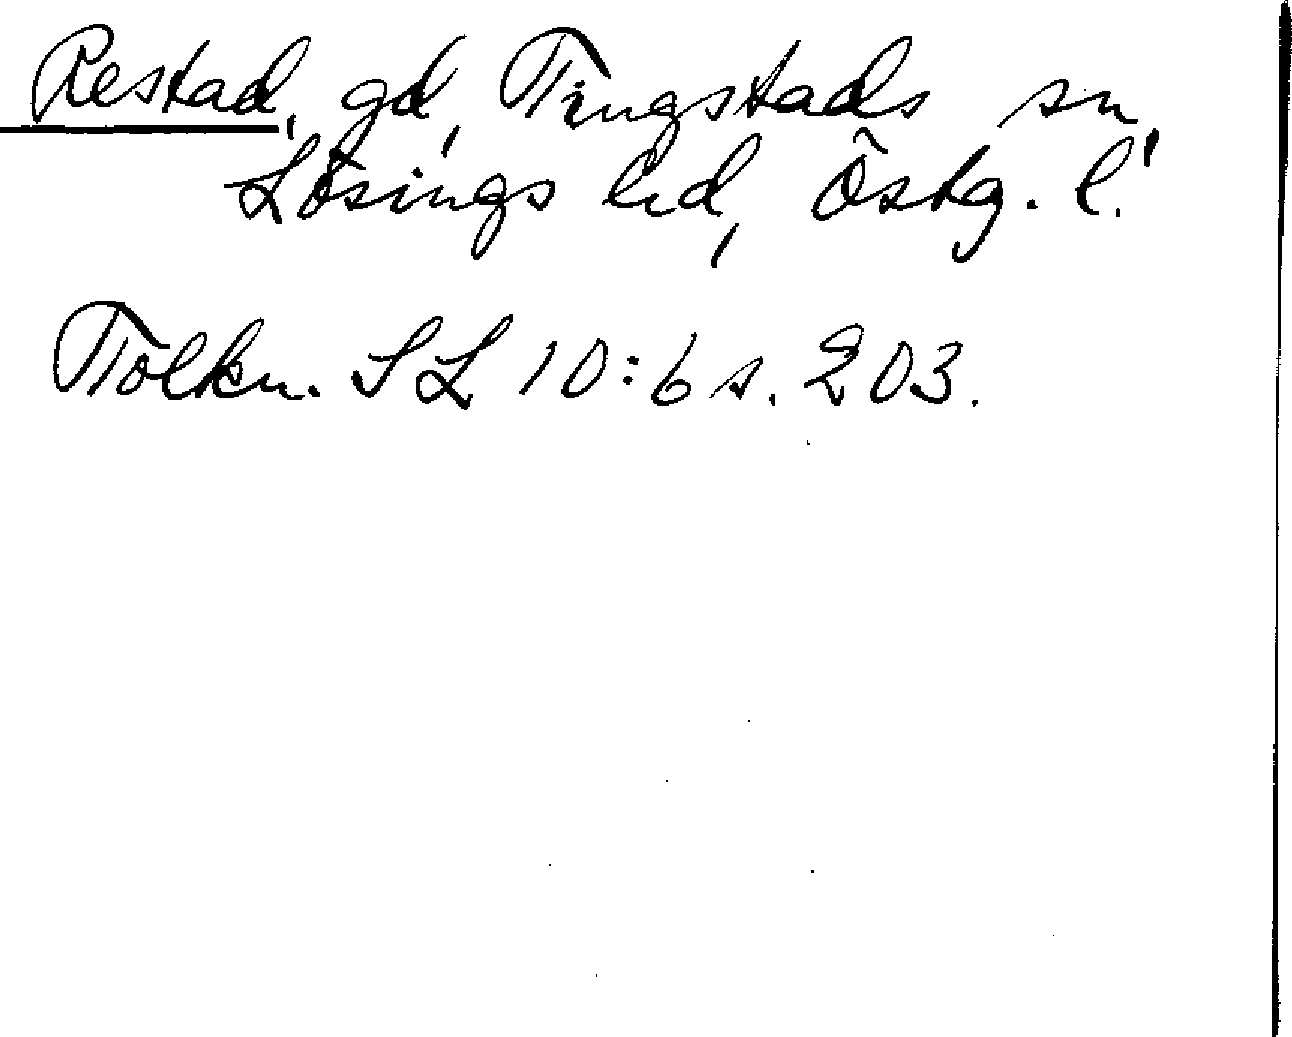 Restad, gd, Tingstads sn,
Lösings hd, Östg. l.
Tolkn. SL 10:6 s. 203.